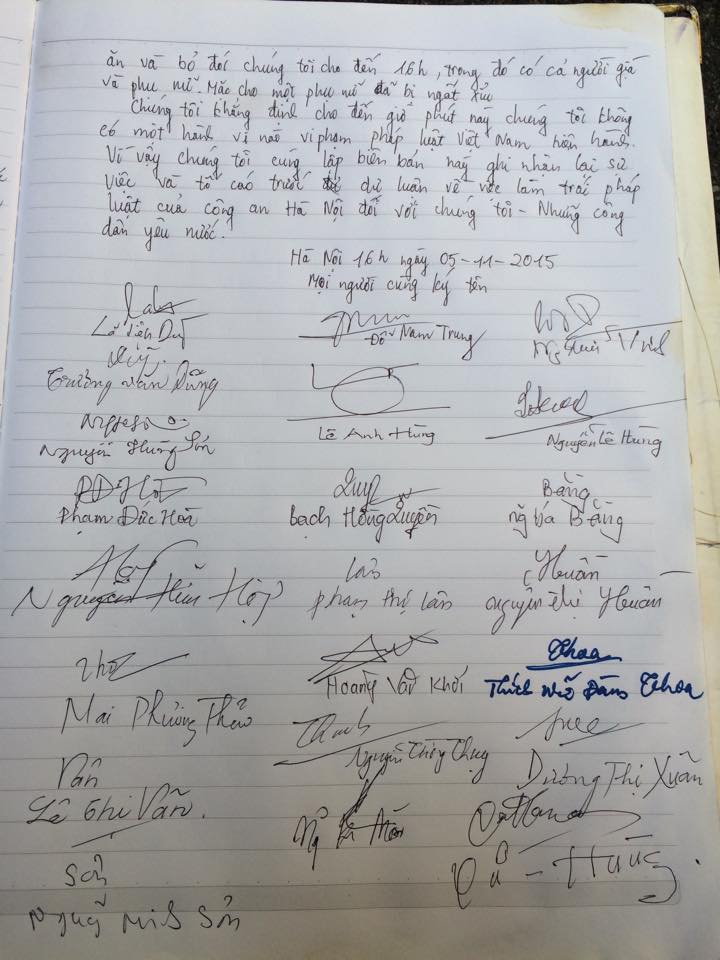 ăn và bỏ đói chúng tôi cho đến 16h, trong đó có cả người già
và phụ nữ. Mặc cho một phụ nữ đã bị ngất xỉu
Chúng tôi khẳng định cho đến giờ phút này chúng tôi không
có một hành vi nào vi phạm pháp luật Việt Nam hiện hành.
Vì vậy chúng tôi cùng lập biên bản này ghi nhận lại sự
việc và tố cáo trước dư luận về việc làm trái pháp
luật của công an Hà Nội đối với chúng tôi - Những công
dân yêu nước.
Hà Nội 16h ngày 05-11-2015
Mọi người cùng ký tên
Đỗ Nam Trung
Trương Văn Dũng
Lê Anh Hùng
Nguyễn Lê Hùng
Phạm Đức Hoà
Quy
Bằng
Bạch Hồng Quyền
ng bá Bằng
Lân
Nhuần
phạm thị Lân
nguyễn thị Nhuần
Thoa
Hoàng Văn Khởi
Thích Nữ Đàm Thoa
Mai Phương Thảo
Thanh
Dương Thị Xuân
Vân
Lê Thị Vân.
Sơn
Minh Sơn